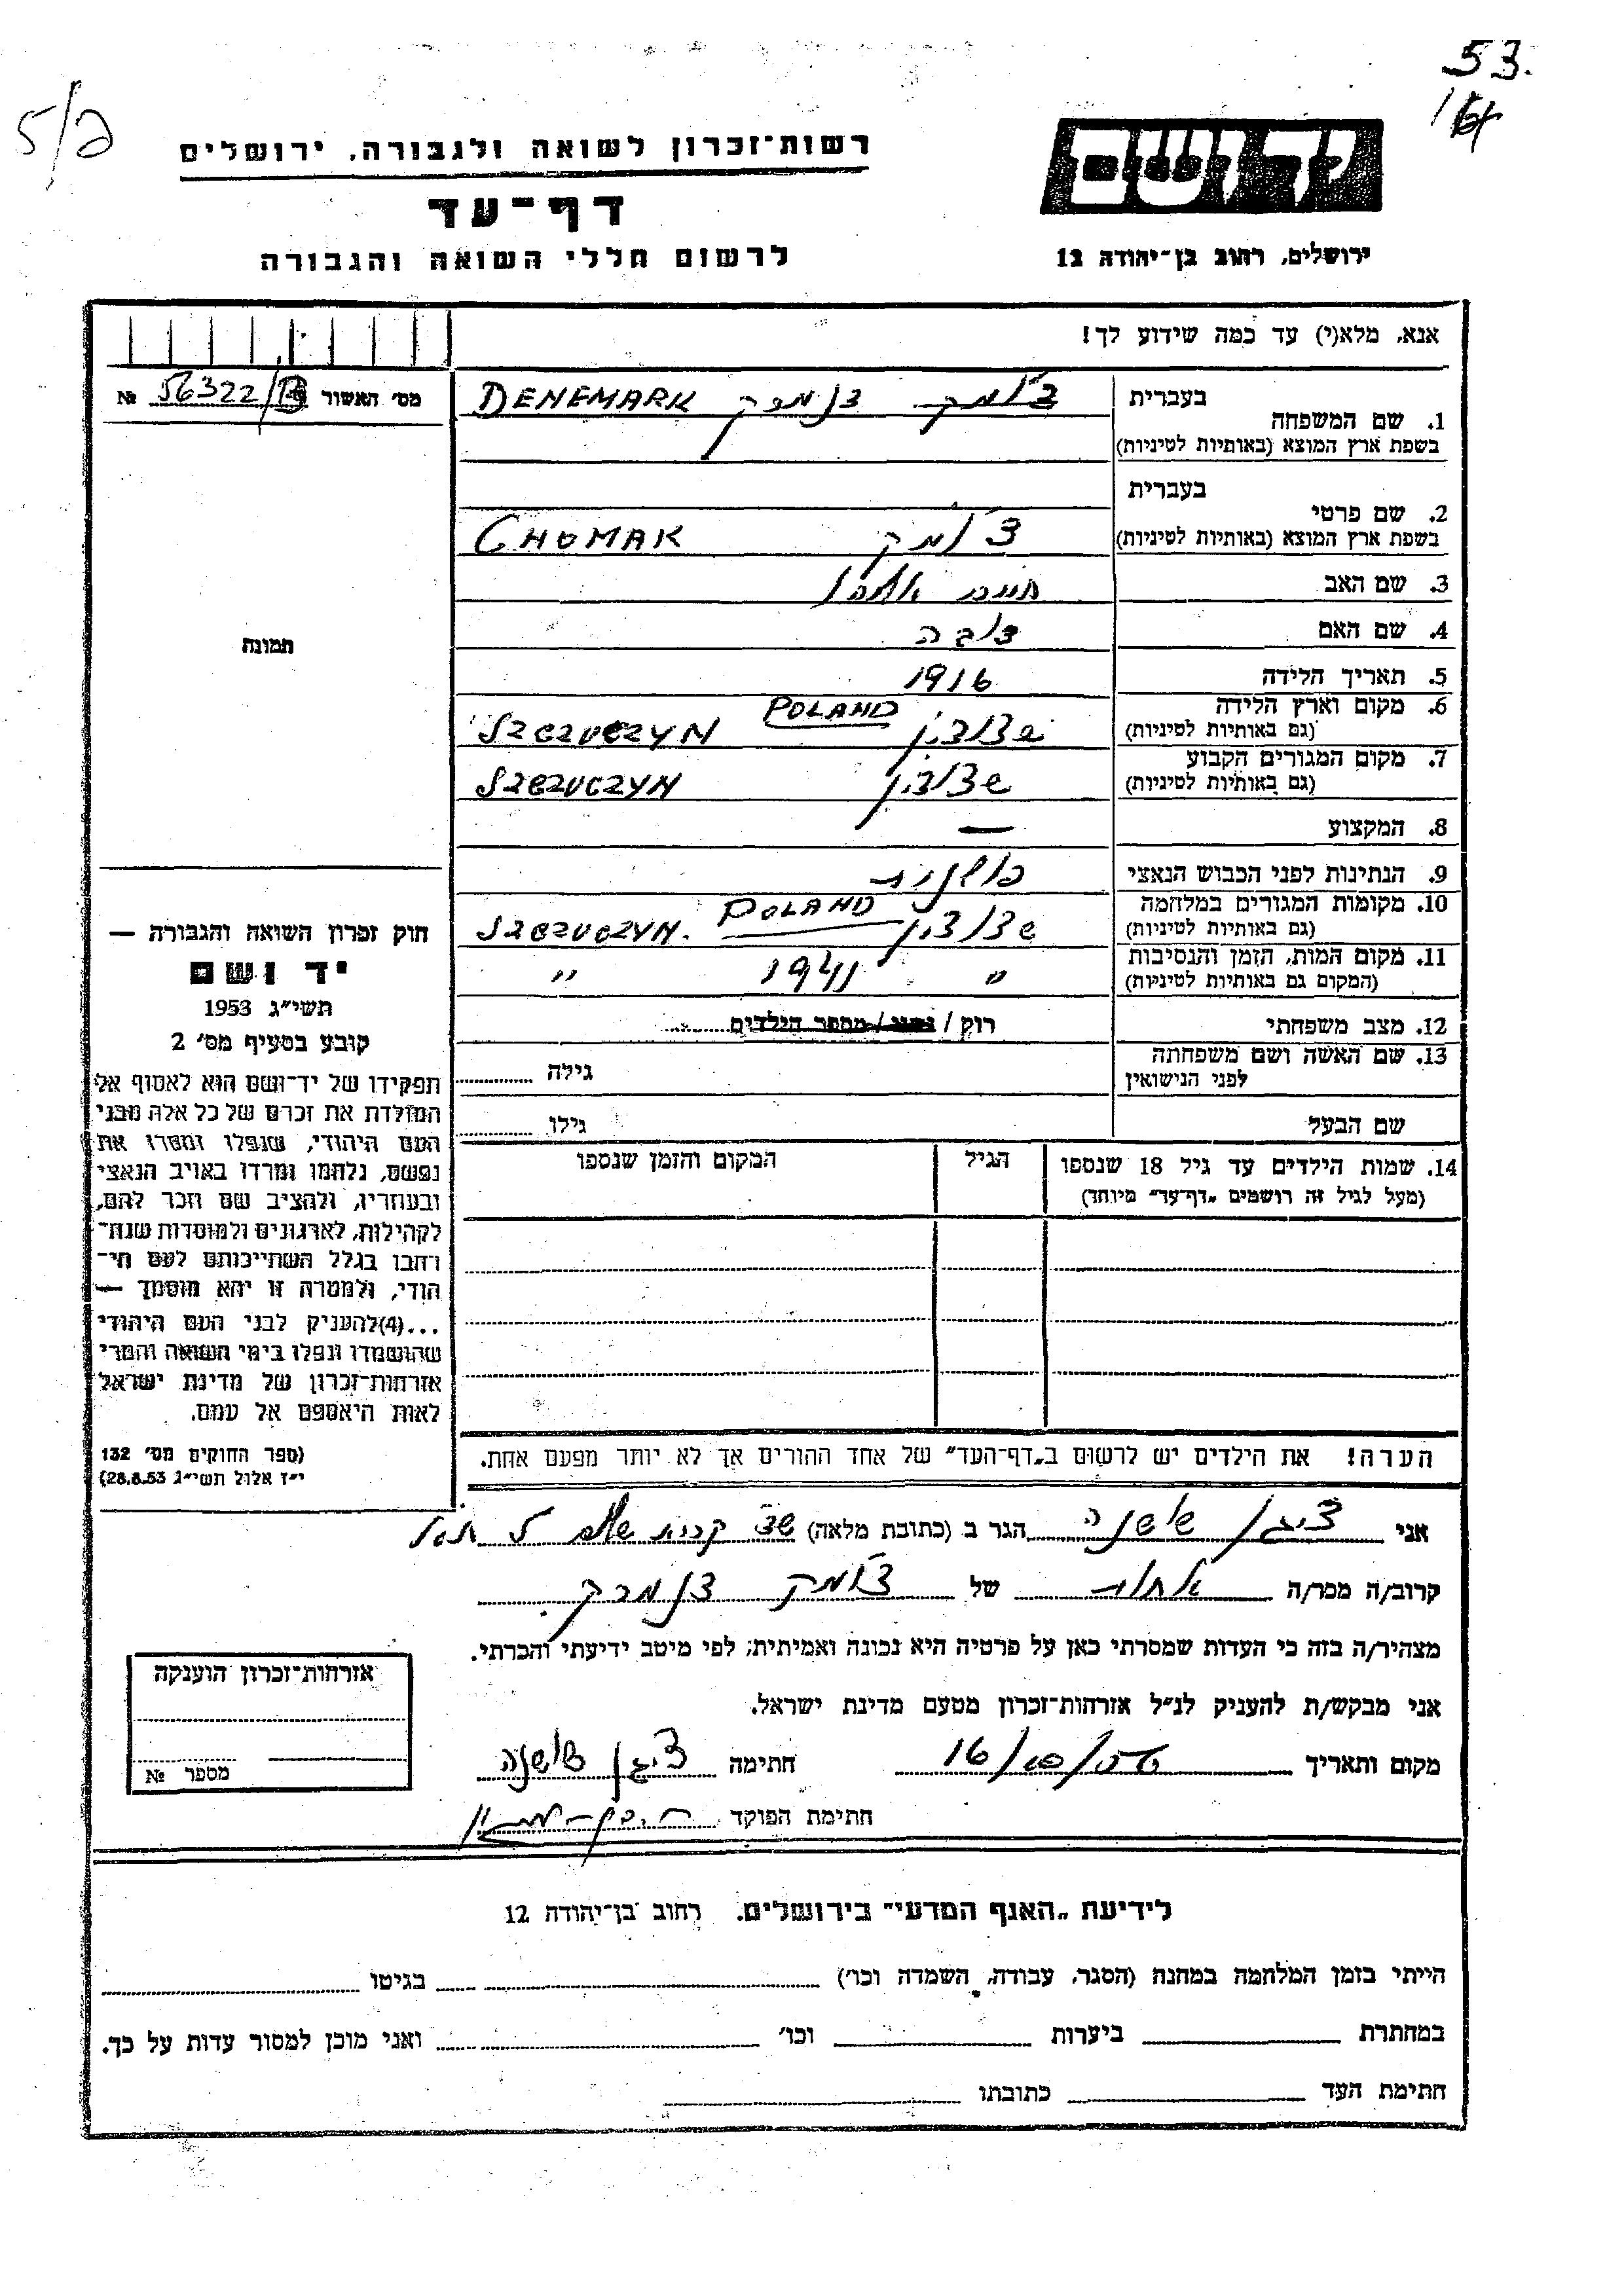 53.
ידושם
רשות־זכרון לשואה ולגבורה, ירושלים
דף־עד
לרשום חללי השואה והגבורה
ירושלים, רחוב בן־יהודה 12
אנא, מלא(י) עד כמה שידוע לך!
מס׳ האשור 56322 №
1. שם המשפחה בעברית דנמרק DENEMARK
בשפת ארץ המוצא (באותיות לטיניות)
בעברית
2. שם פרטי
בשפת ארץ המוצא (באותיות לטיניות) CHOMAK
3. שם האב חיים
4. שם האם
5. תאריך הלידה 1916
6. מקום וארץ הלידה POLAND
(גם באותיות לטיניות) SZCZUCZYN שצוצין
7. מקום המגורים הקבוע
(גם באותיות לטיניות) SZCZUCZYN שצוצין
8. המקצוע —
9. הנתינות לפני הכבוש הנאצי פולנית
10. מקומות המגורים במלחמה POLAND
(גם באותיות לטיניות) SZCZUCZYN. שצוצין
11. מקום המות, הזמן והנסיבות " 1941 "
(המקום גם באותיות לטיניות)
12. מצב משפחתי רוק / נשוי / מספר הילדים
13. שם האשה ושם משפחתה
לפני הנישואין גילה
שם הבעל גילו
14. שמות הילדים עד גיל 18 שנספו הגיל המקום והזמן שנספו
(מעל לגיל זה רושמים „דף־עד״ מיוחד)
הערה! את הילדים יש לרשום ב„דף־העד״ של אחד ההורים אך לא יותר מפעם אחת.
תמונה
חוק זכרון השואה והגבורה —
יד ושם
תשי״ג 1953
קובע בסעיף מס׳ 2
תפקידו של יד־ושם הוא לאסוף אל
המולדת את זכרם של כל אלה מבני
העם היהודי, שנפלו ומסרו את
נפשם, נלחמו ומרדו באויב הנאצי
ובעוזריו, ולהציב שם וזכר להם,
לקהילות, לארגונים ולמוסדות שנח־
רחבו בגלל השתייכותם לעם הי־
הודי, ולמטרה זו יהא מוסמך —
...(4) להעניק לבני העם היהודי
שהושמדו ונפלו בימי השואה והמרי
אזרחות־זכרון של מדינת ישראל
לאות היאספם אל עמם.
(ספר החוקים מס׳ 132
י״ז אלול תשי״ג 28.8.53)
אני שושנה הגר ב (כתובת מלאה) קרית שלום
קרוב/ה מכר/ה אחות של דנמרק
מצהיר/ה בזה כי העדות שמסרתי כאן על פרטיה היא נכונה ואמיתית, לפי מיטב ידיעתי והכרתי.
אני מבקש/ת להעניק לנ״ל אזרחות־זכרון מטעם מדינת ישראל.
מקום ותאריך 16/ חתימה שושנה
חתימת הפוקד
אזרחות־זכרון הוענקה
מספר №
לידיעת „האגף המדעי״ בירושלים. רחוב בן־יהודה 12
הייתי בזמן המלחמה במחנה (הסגר, עבודה, השמדה וכו׳) בגיטו
במחתרת ביערות וכו׳ ואני מוכן למסור עדות על כך.
חתימת העד כתובתו